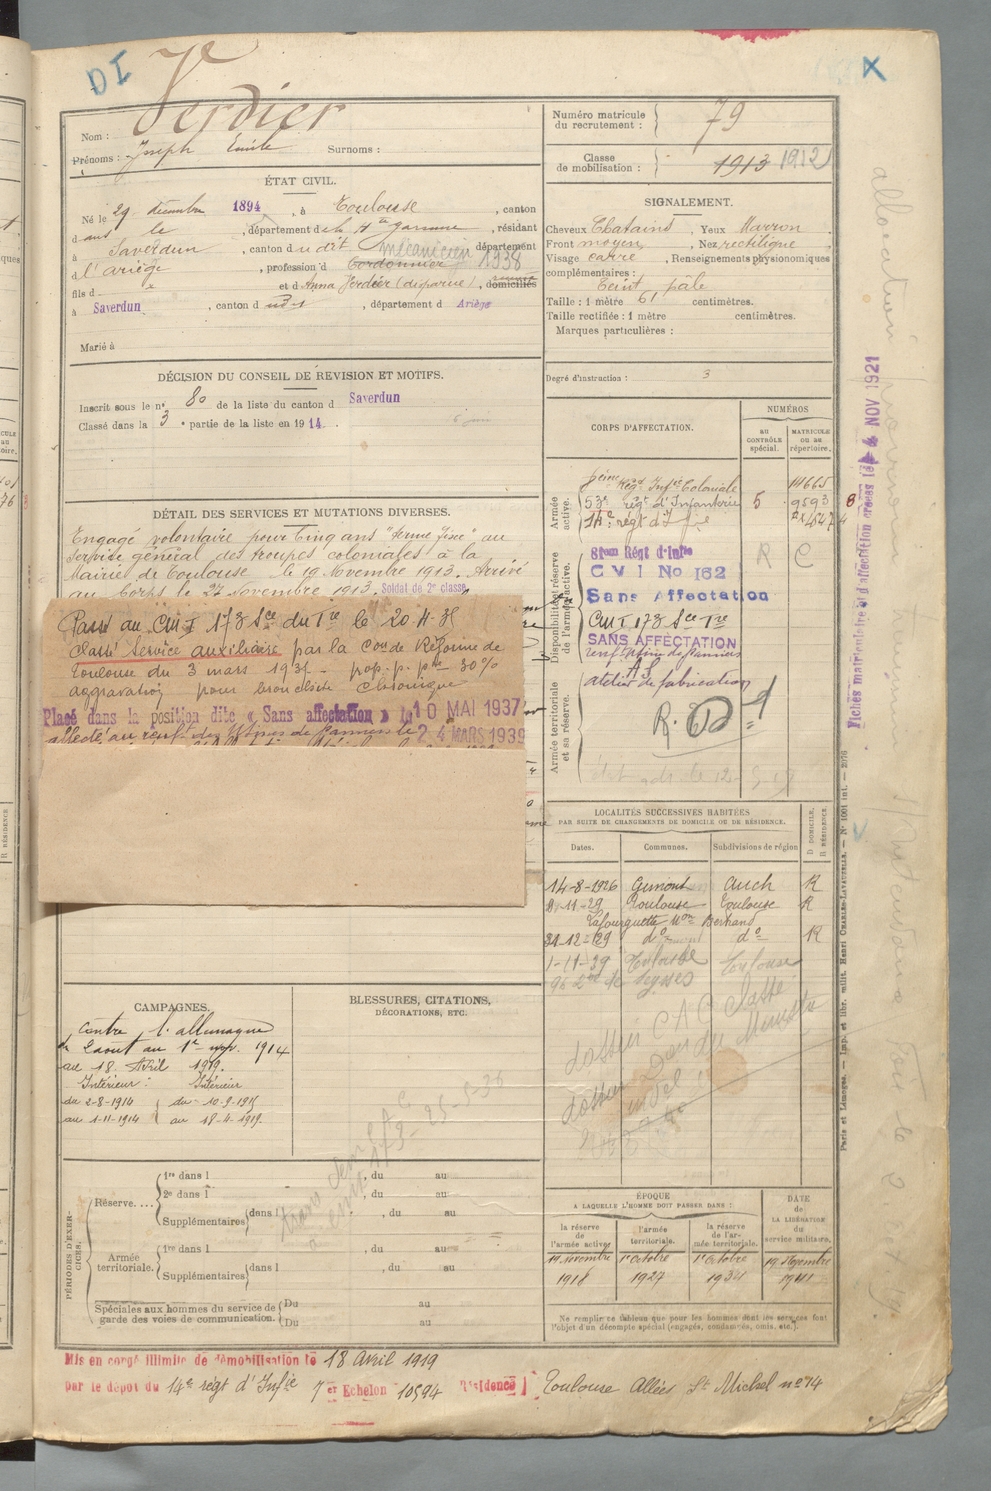 DI
Verdier
X
Nom :
Prénoms : Joseph Emile Surnoms :
Numéro matricule du recrutement : 79
Classe de mobilisation : 1913 1912
ÉTAT CIVIL.
Né le 29 décembre 1894, à Toulouse, canton
dans le, département de la Hte Garonne, résidant
à Saverdun, canton du dit département
d l'ariège, profession d cordonnier mécanicien 1938
fils d x et d Anna Verdier (disparue), domiciliés
à Saverdun, canton d udt, département d Ariège
Marié à
SIGNALEMENT.
Cheveux Chatains, Yeux Marron
Front moyen, Nez rectiligne
Visage carré, Renseignements physionomiques
complémentaires :
Teint pâle
Taille : 1 mètre 61 centimètres.
Taille rectifiée : 1 mètre centimètres.
Marques particulières :
Degré d'instruction : 3
DÉCISION DU CONSEIL DE RÉVISION ET MOTIFS.
Inscrit sous le n° 80 de la liste du canton d Saverdun
Classé dans la 3e partie de la liste en 1914.
DÉTAIL DES SERVICES ET MUTATIONS DIVERSES.
Engagé volontaire pour Cinq ans "terme fixe" au
Service général des troupes coloniales à la
Mairie de Toulouse le 19 Novembre 1913. Arrivé
au Corps le 27 Novembre 1913. Soldat de 2e classe
Passé au CM I 173 Sce du Tre le 20-4-35
Classé Service auxiliaire par la Con de Réforme de
Toulouse du 3 mars 1935 - prop. p. pre 30%
aggravation pour bronchite chronique
Placé dans la position dite « Sans affectation » le 10 MAI 1937
affecté au renf. des Usines de Pamiers le 24 MARS 1939
CORPS D'AFFECTATION.
NUMÉROS
au CONTRÔLE spécial.
MATRICULE ou au répertoire.
Armée active.
Régt Infie Coloniale
53e régt d'Infanterie 5 9593
14e régt d'Infie
Disponibilité et réserve de l'armée active.
81eme Régt d'Infie R C
CVI No 162
Sans Affectation
CM I 173 Sce Tre
SANS AFFECTATION
renf. Usine de Pamiers
AS
atelier de fabrication
Armée territoriale et sa réserve.
Fiches matriculaire et d'affectation créées le 4 NOV 1921
LOCALITÉS SUCCESSIVES HABITÉES
PAR SUITE DE CHANGEMENTS DE DOMICILE OU DE RÉSIDENCE.
D DOMICILE.
R RÉSIDENCE
Dates. Communes. Subdivisions de région
14-8-1926 Gimont Auch R
8-11-29 Toulouse Toulouse R
Lafourguette Mon Bertrand
31-12-29 do do R
1-11-39 Toulouse Toulouse
CAMPAGNES.
Contre l'allemagne
du 2 aout au 1er nov. 1914
au 18 Avril 1919.
Intérieur : Intérieur
du 2-8-1914 du 10-9-1915
au 1-11-1914 au 18-4-1919.
BLESSURES, CITATIONS,
DÉCORATIONS, ETC.
PÉRIODES D'EXERCICES.
Réserve....
1re dans l , du au
2e dans l , du au
Supplémentaires dans l , du au
Armée territoriale.
1re dans l , du au
Supplémentaires dans l , du au
Spéciales aux hommes du service de garde des voies de communication.
Du au
Du au
ÉPOQUE
A LAQUELLE L'HOMME DOIT PASSER DANS :
la réserve de l'armée active
l'armée territoriale.
la réserve de l'armée territoriale.
DATE de LA LIBÉRATION du service militaire.
19 Novembre 1er Octobre 1er Octobre 19 Novembre
1918 1927 1934 1941
Ne remplir ce tableau que pour les hommes dont les services font
l'objet d'un décompte spécial (engagés, condamnés, omis, etc.).
Paris et Limoges. — Imp. et libr. milit. Henri CHARLES-LAVAUZELLE. — N° 1001 int. — 2076
Mis en congé illimité de démobilisation le 18 Avril 1919
par le dépôt du 14e régt d'Infie 7er Echelon 10594 Résidence Toulouse Allées St Michel no 14